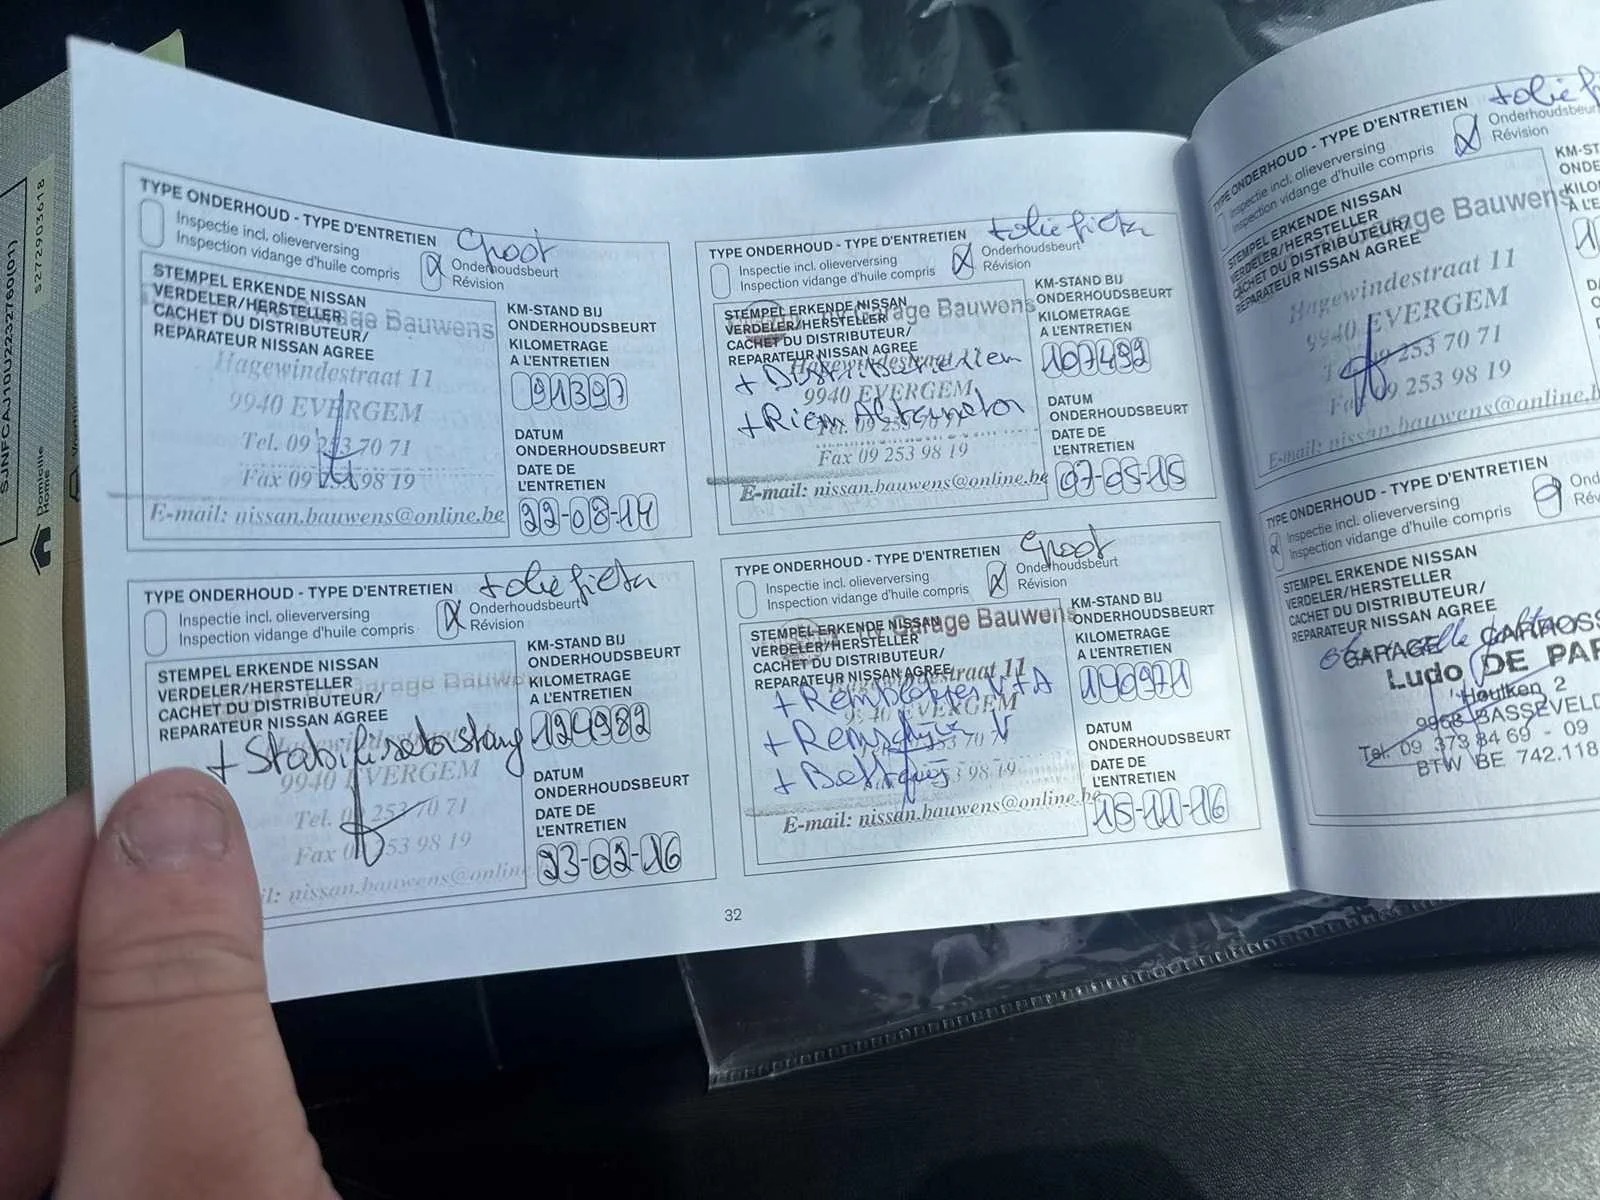 SJNFCAJ10U2232760(01)
S272903618
Domicile
Home
TYPE ONDERHOUD - TYPE D'ENTRETIEN
Groot
Inspectie incl. olieverversing
Inspection vidange d'huile compris
Onderhoudsbeurt
Révision
STEMPEL ERKENDE NISSAN
VERDELER/HERSTELLER
CACHET DU DISTRIBUTEUR/
REPARATEUR NISSAN AGREE
Garage Bauwens
Hagewindestraat 11
9940 EVERGEM
Tel. 09 253 70 71
Fax 09 253 98 19
E-mail: nissan.bauwens@online.be
KM-STAND BIJ
ONDERHOUDSBEURT
KILOMETRAGE
A L'ENTRETIEN
91397
DATUM
ONDERHOUDSBEURT
DATE DE
L'ENTRETIEN
22-08-14
TYPE ONDERHOUD - TYPE D'ENTRETIEN
+oliefilter
Inspectie incl. olieverversing
Inspection vidange d'huile compris
Onderhoudsbeurt
Révision
STEMPEL ERKENDE NISSAN
VERDELER/HERSTELLER
CACHET DU DISTRIBUTEUR/
REPARATEUR NISSAN AGREE
Garage Bauwens
Hagewindestraat
+ Distributieriem
9940 EVERGEM
+ Riem Alternator
Tel. 09 253 70 71
Fax 09 253 98 19
E-mail: nissan.bauwens@online.be
KM-STAND BIJ
ONDERHOUDSBEURT
KILOMETRAGE
A L'ENTRETIEN
107492
DATUM
ONDERHOUDSBEURT
DATE DE
L'ENTRETIEN
07-05-15
TYPE ONDERHOUD - TYPE D'ENTRETIEN
+oliefilter
Inspectie incl. olieverversing
Inspection vidange d'huile compris
Onderhoudsbeurt
Révision
STEMPEL ERKENDE NISSAN
VERDELER/HERSTELLER
CACHET DU DISTRIBUTEUR/
REPARATEUR NISSAN AGREE
Garage Bauwens
+ Stabilisatorstang
9940 EVERGEM
Tel. 09 253 70 71
Fax 09 253 98 19
nissan.bauwens@online
KM-STAND BIJ
ONDERHOUDSBEURT
KILOMETRAGE
A L'ENTRETIEN
124982
DATUM
ONDERHOUDSBEURT
DATE DE
L'ENTRETIEN
23-02-16
TYPE ONDERHOUD - TYPE D'ENTRETIEN
Groot
Inspectie incl. olieverversing
Inspection vidange d'huile compris
Onderhoudsbeurt
Révision
STEMPEL ERKENDE NISSAN
VERDELER/HERSTELLER
CACHET DU DISTRIBUTEUR/
REPARATEUR NISSAN AGREE
Garage Bauwens
straat 11
+ Remblokjes V+A
9940 EVERGEM
+ Remschijven V
+ Batterij
E-mail: nissan.bauwens@online.be
KM-STAND BIJ
ONDERHOUDSBEURT
KILOMETRAGE
A L'ENTRETIEN
140971
DATUM
ONDERHOUDSBEURT
DATE DE
L'ENTRETIEN
15-11-16
32
TYPE ONDERHOUD - TYPE D'ENTRETIEN
Inspectie incl. olieverversing
Inspection vidange d'huile compris
Onderhoudsbeurt
Révision
STEMPEL ERKENDE NISSAN
VERDELER/HERSTELLER
CACHET DU DISTRIBUTEUR/
REPARATEUR NISSAN AGREE
Garage Bauwens
Hagewindestraat 11
9940 EVERGEM
09 253 70 71
Fax 09 253 98 19
E-mail: nissan.bauwens@online.b
KM-ST
ONDE
KILO
A L'E
TYPE ONDERHOUD - TYPE D'ENTRETIEN
Inspectie incl. olieverversing
Inspection vidange d'huile compris
Ond
Rév
STEMPEL ERKENDE NISSAN
VERDELER/HERSTELLER
CACHET DU DISTRIBUTEUR/
REPARATEUR NISSAN AGREE
GARAGE CARROSS
Ludo DE PA
Houlken 2
9968 BASSEVELD
Tel. 09 373 84 69 - 09
BTW BE 742.118